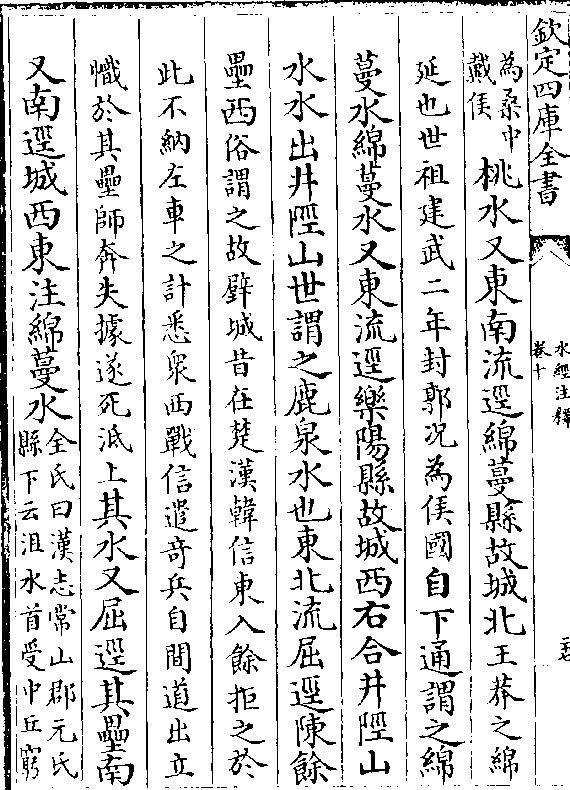 欽定四庫全書
水經注釋
卷十
為桑中
戴侯
桃水又東南流逕綿蔓縣故城北王莽之綿
延也世祖建武二年封郭况為侯國自下通謂之綿
蔓水綿蔓水又東流逕樂陽縣故城西右合井陘山
水水出井陘山世謂之鹿泉水也東北流屈逕陳餘
壘西俗謂之故壁城昔在楚漢韓信東入餘拒之於
此不納左車之計悉衆西戰信遣奇兵自間道出立
幟於其壘師奔失據遂死泜上其水又屈逕其壘南
又南逕城西東注綿蔓水
全氏曰漢志常山郡元氏
縣下云沮水首受中丘窮